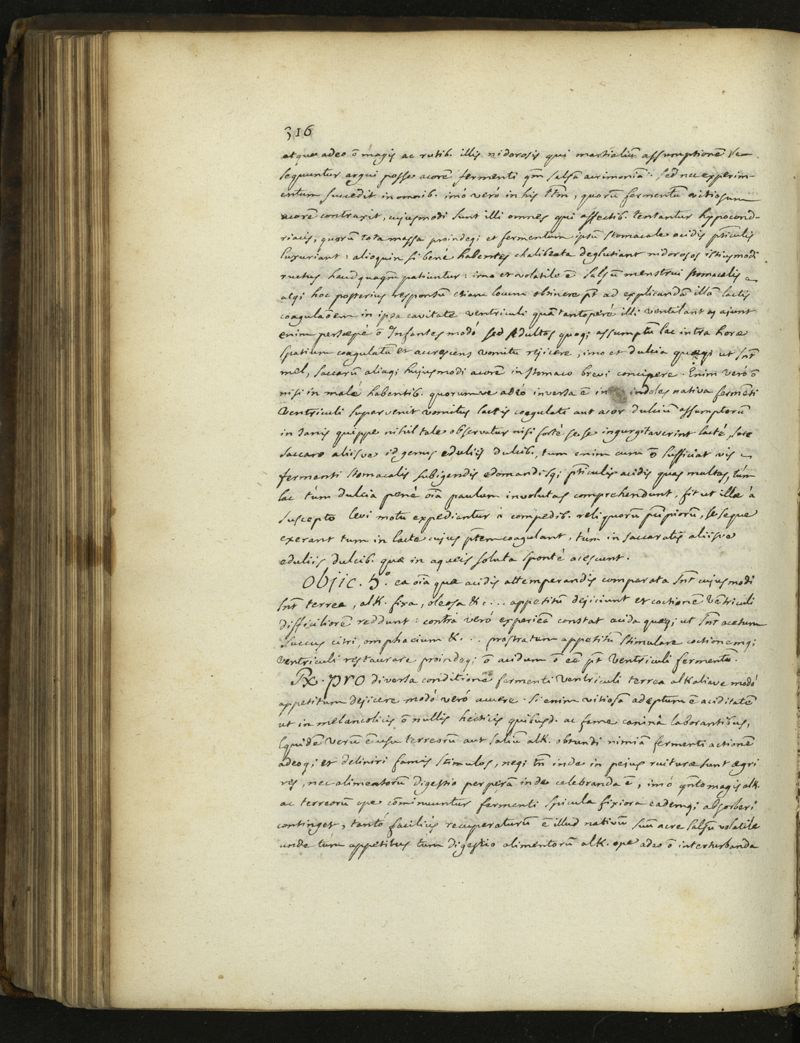 316
atque adeo õ magis ac rutib. illis nidorosis qui martialiũ assumptionẽ se-
sequuntur argui posse acorẽ fermenti qm̃ salsã acrimoniã. Sed nec experim-
entum succedit in omnib. imò verò in his tm̃, quorũ fermentũ vitiosum
acorẽ contraxit, cujusmodi sunt illi omnes qui affectib. tentantur hypocond-
riacis, quorũ tota massa proindeqi et fermentum ipsũ stomacale acidis pticulis
luxuriant: alioquin si benè habentes chalibeata deglutiant nidorosos istiusmodi
ructus haudquaqm̃ patiuntur: imo et volatile ẽ salsũ menstrui stomacalis
atqi hoc posterius responsũ etiam locum obtinere pt ad explicandã illã lactis
coagulaõem in ipsa cavitate ventriculi quã tantoperè illi ventilant ajunt
enim persæpè õ Infantes modò sed Adultos quoqi assumptũ lac intra horæ
spatium coagulatũ et acrescens vomitu rejicere, imo et dulcia quæqi ut snt̃
mel, saccarũ aliaqi hujusmodi acorẽ in stomaco brevi concipere. Enim verò õ
nisi in malè habentib. quorumve adeò inversa ẽ indoles nativa fermẽti
ventriculi supervenit vomitus lactis coagulati aut acor dulciũ assumptorũ
in sanis quippe nihil tale observatur nisi fortè sese ingurgitaverint lactè, sive
saccaro aliisve id genus eduliis dulcib. tum enim cum õ sufficiat vis
fermenti stomacalis subigendis edomandisqi pticulis acidis quas multas, tùm
lac tùm dulcia penè oĩa paulum involutas comprehendunt, fit ut illæ à
suscepto levi motu expediantur à compedib. reliquorũ pcipiorũ, seseque
exerant tum in lacte cujus ptem coagulant, tùm in saccaratis aliisve
eduliis dulcib. quæ in aqueis soluta spontè acescunt.
Objic. 5.º ea oĩa quæ acidis attemperandis comparata snt̃ cujusmodi
snt̃ terrea, alk. fixa, oleosa &c... appetitũ dejiciunt et coctionẽ ventriculi
difficiliorẽ reddunt: contrà verò experiẽa constat acida quæqi ut snt̃ acetum
succus citri, omphacium &c... prostratum appetitũ stimulare coctionemqi
ventriculi restaurare proindeqi õ acidum õ eẽ pt ventriculi fermentũ.
Rx. pro diversa conditionẽ fermenti ventriculi terrea alkaliave modò
appetitum dejicere modò verò augere. Si enim vitiosã adeptum ẽ aciditatẽ
ut in melancolicis õ nullis hecticis quibusd. ac fame canina laborantibus,
equidẽ verũ ẽ usu terreorũ aut saliũ alk. obtundi nimiã fermenti actionẽ
adeoqi et deliniri famis stimulos, neqi tñ inde in pejus ruituræ sunt ægri
res, nec alimentorũ digestio perperã inde celebranda ẽ, imò qnto magis alk.
ac terreorũ ope com̃inuuntur fermenti spicula fixiora eademqi absorberi
continget, tantò faciliùs recuperaturũ ẽ illud nativũ suũ acre salsũ volatile
unde tum appetitus tum digestio alimentorũ alk. ope adeo õ interturbanda